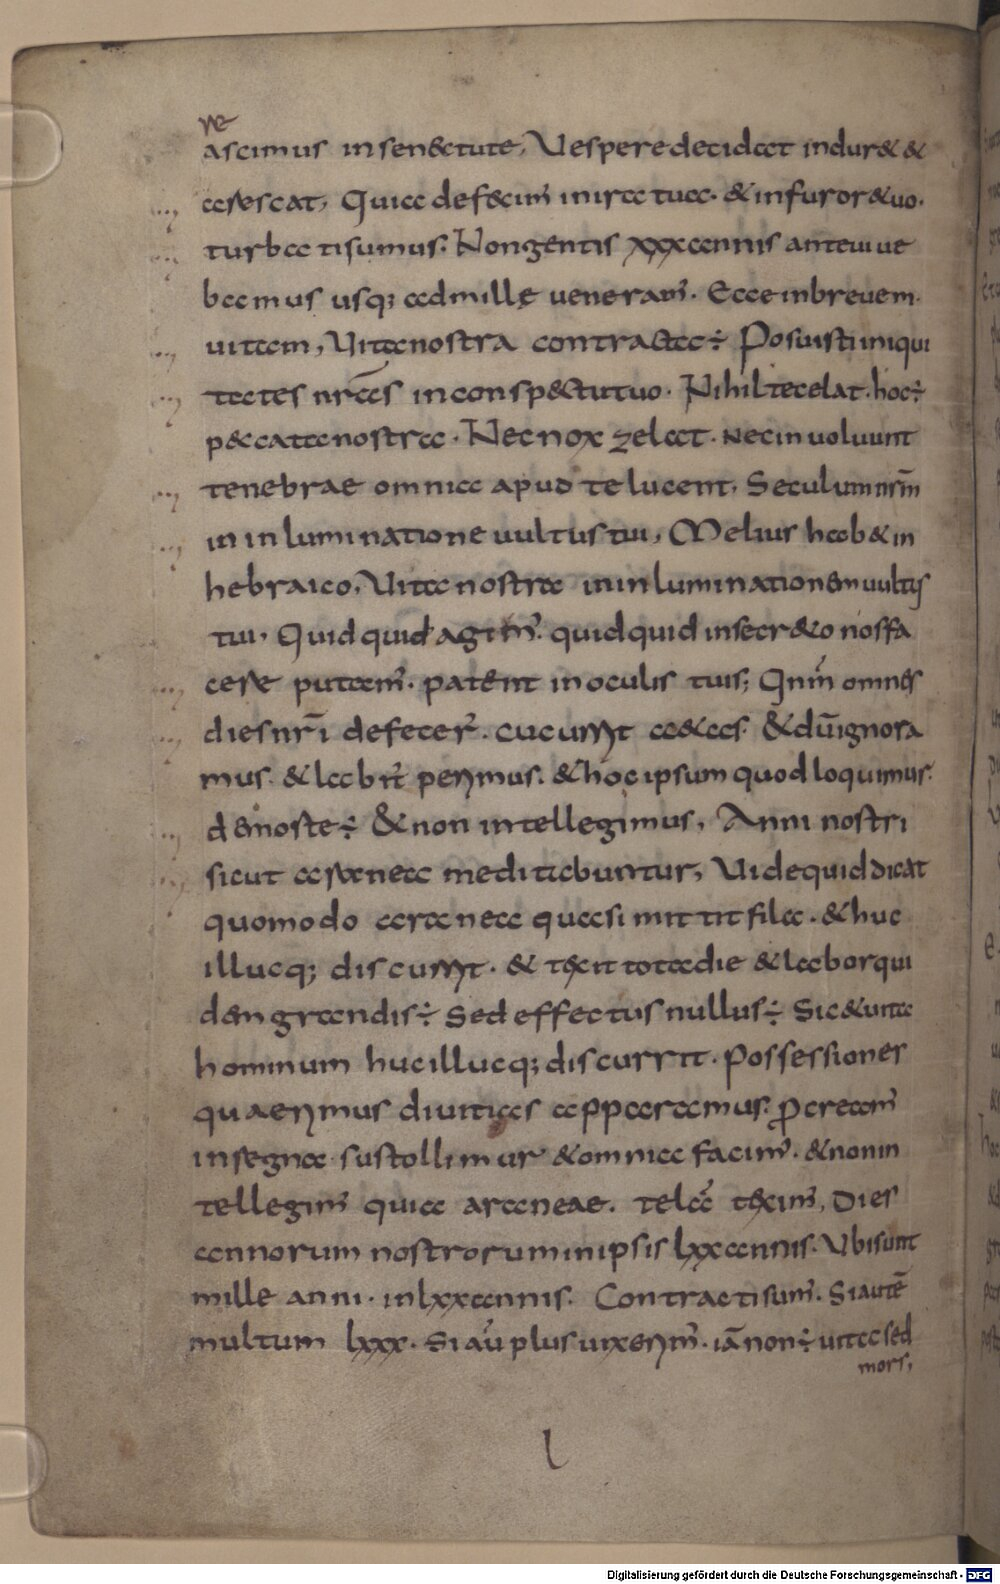 ne
ascimus in senectute, Uespere decidat induret et
arescat, Quia defecim̄ in ira tua. et in furore tuo.
turbati sumus. Nongentis xxx annis ante uiue
bamus usq; ad mille ueneram̄. Ecce in breuem
uitam, Uita nostra contracta ÷ Posuisti iniqui
tates nr̄as in conspectu tuo. Nihil te celat. hoc ÷
peccata nostra. Nec nox zelat. nec inuoluunt
tenebrae omnia apud te lucent, Seculum nrm̄
in inluminatione uultus tui, Melius habet in
hebraico, Uita nostra in inluminationem uultus
tui, Quidquid agim̄. quidquid in secreto nos fa
cere putam̄. patent in oculis tuis; Qnm̄ omnes
dies nr̄i defecer̄. cucurrit aetas. et dū ignora
mus. et labit̄ perimus. et hoc ipsum quod loquimus.
de morte ÷ et non intellegimus, Anni nostri
sicut aranea meditabuntur, Uide quid dicat
quomodo aranea quasi mittit fila. et huc
illucq; discurrit. et texit tota die et labor qui
dem grandis ÷ Sed effectus nullus ÷ Sic et uita
hominum huc illucq; discurrit. Possessiones
quaerimus diuitias apparamus. Procream̄
in regna sustollimur et omnia facim̄. et non in
tellegim̄ quia araneae. telas̄ texim̄, Dies
annorum nostrorum in ipsis lxx annis. Ubi sunt
mille anni. in lxx annis. Contracti sum̄. Si autē
multum lxxx. Si au plus uixerim̄. iā non ÷ uita sed
mors,
l
Digitalisierung gefördert durch die Deutsche Forschungsgemeinschaft - DFG